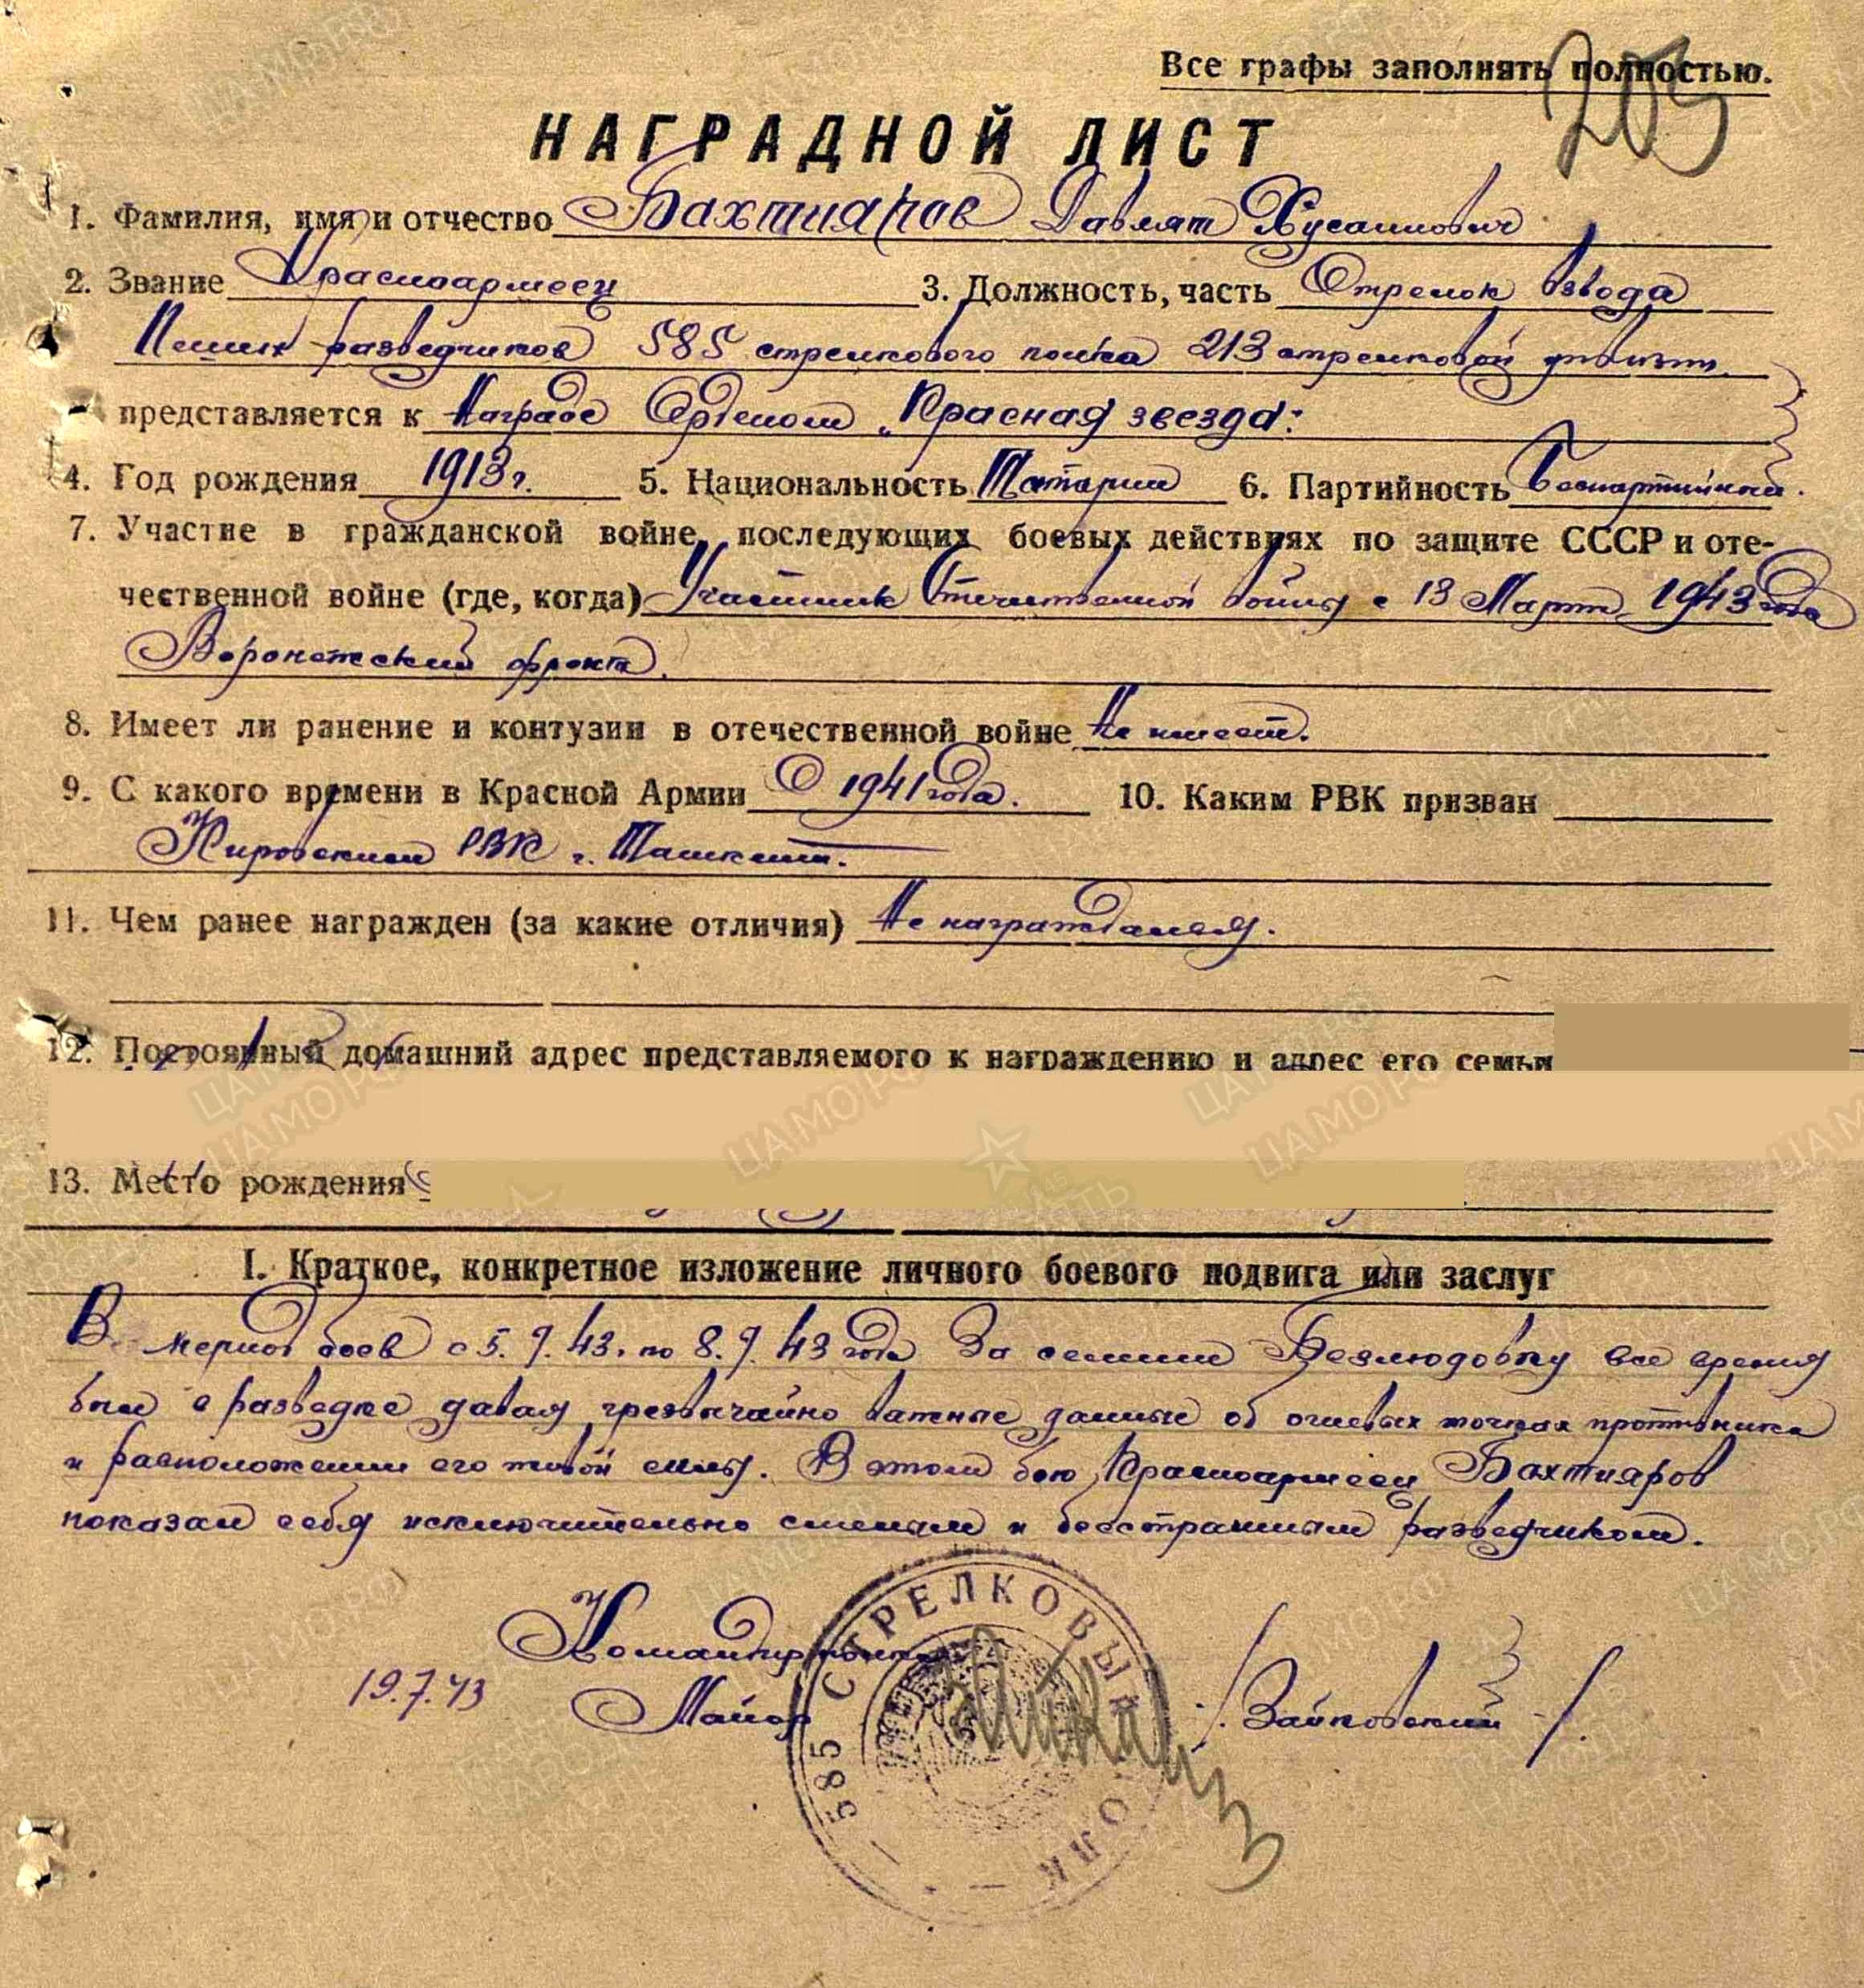 Все графы заполнять полностью.
205
НАГРАДНОЙ ЛИСТ
1. Фамилия, имя и отчество Бахтияров Давлят Хусаинович
2. Звание Красноармеец 3. Должность, часть Стрелок взвода
Пеших разведчиков 585 стрелкового полка 213 стрелковой дивизии.
представляется к Награде Орденом „Красная звезда":
4. Год рождения 1913 г. 5. Национальность Татарин 6. Партийность Беспартийный.
7. Участие в гражданской войне, последующих боевых действиях по защите СССР и оте-
чественной войне (где, когда) Участник Отечественной войны с 13 Марта 1943 года
Воронежский фронт.
8. Имеет ли ранение и контузии в отечественной войне Не имеет.
9. С какого времени в Красной Армии С 1941 года. 10. Каким РВК призван
Кировским РВК г. Ташкент.
11. Чем ранее награжден (за какие отличия) Не награждался.
12. Постоянный домашний адрес представляемого к награждению и адрес его семьи
13. Место рождения
I. Краткое, конкретное изложение личного боевого подвига или заслуг
В период боев с 5.7.43. по 8.7.43 года За селение Безлюдовку все время
был в разведке давая чрезвычайно важные данные об огневых точках противника
и расположении его живой силы. В этом бою Красноармеец Бахтияров
показал себя исключительно смелым и бесстрашным разведчиком.
Командир полка
19.7.43 Майор /.Зайковский-/.
585 СТРЕЛКОВЫЙ ПОЛК